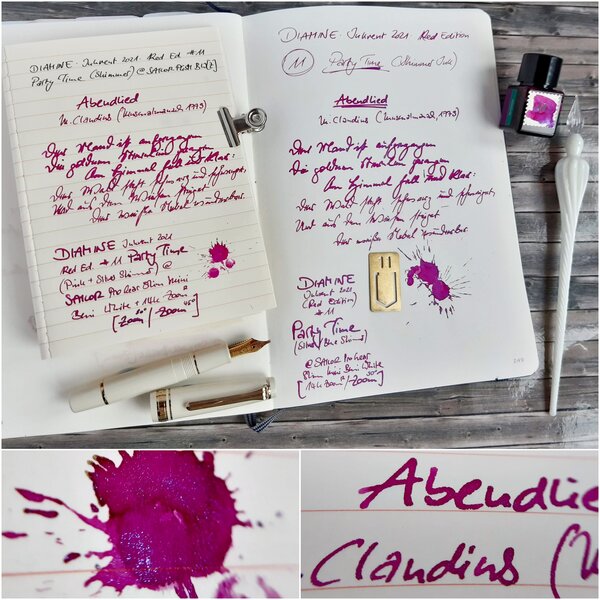 DIAMINE. Inkvent 2021 Red Ed. #11
Party Time (Shimmer) @ SAILOR
Abendlied
M. Claudius (Musenalmanach,
Der Mond ist aufgegangen
Die goldnen Sternlein prangen
Am Himmel hell und klar:
Der Wald steht schwarz und schweiget,
Und aus den Wiesen steiget
Der weiße Nebel wunderbar.
DIAMINE Inkvent 2021
Red Ed. #11 Party Time
(Pink + Silver Shimmer) @
SAILOR ProGear Slim Mini
White + 14k Zoom
[Zoom / Zoom]
DIAMINE. Inkvent 2021 Red Edition
11 Party Time (Shimmer Ink)
Abendlied
M. Claudius (Musenalmanach,
Der Mond ist aufgegangen
Die goldnen Sternlein prangen
Am Himmel hell und klar:
Der Wald steht schwarz und schweiget,
Und aus den Wiesen steiget
Der weiße Nebel wunderbar.
DIAMINE
Inkvent 2021
(Red Edition)
#11
Party Time
(Silver/Blue Shimmer)
@ SAILOR ProGear
Slim Mini White
[14k Zoom / Zoom]
Abendlie
Claudius (